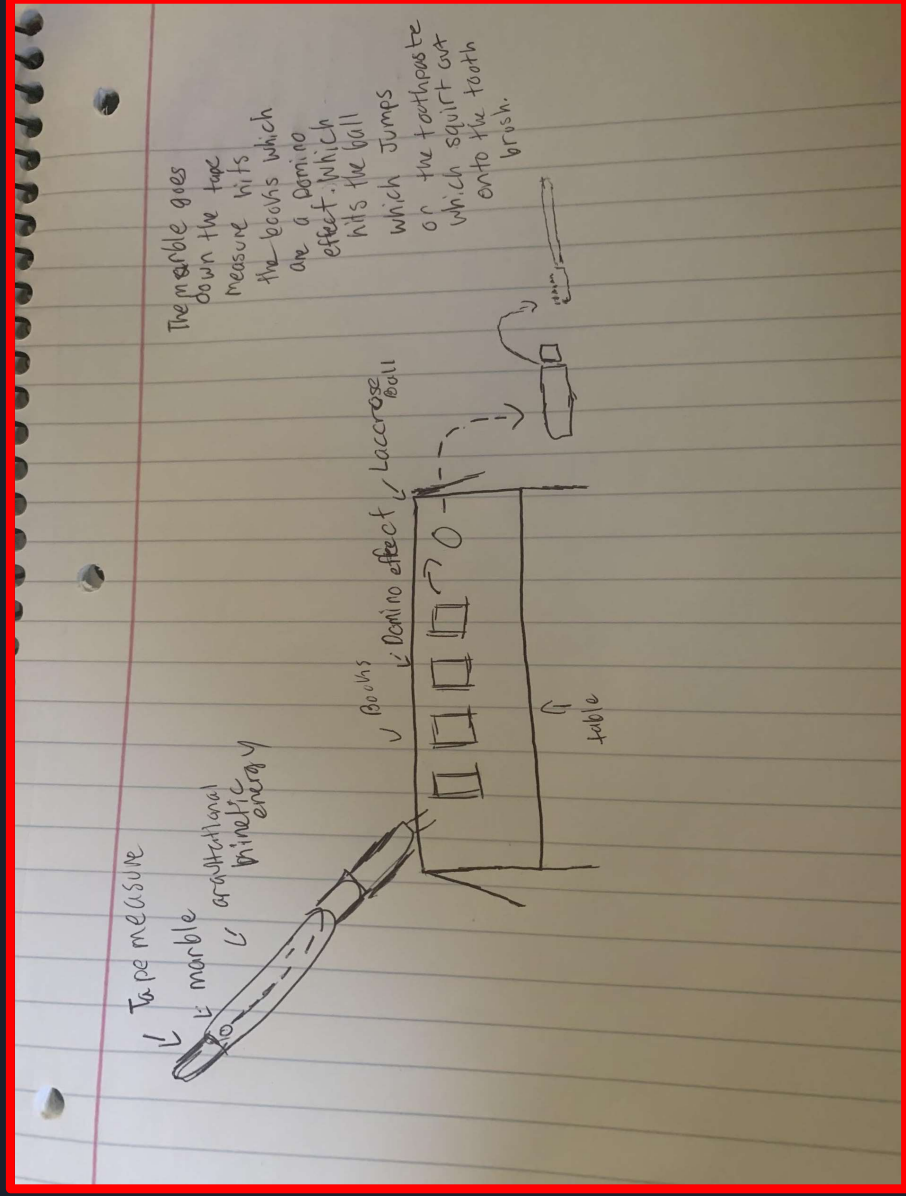 Tape measure
marble
gravitational
kinetic
energy
Books
Domino effect
Laccrose
Ball
table
The marble goes
down the tape
measure hits
the books which
are a Domino
effect. Which
hits the ball
which Jumps
or the toothpaste
which squirt out
onto the tooth
brush.